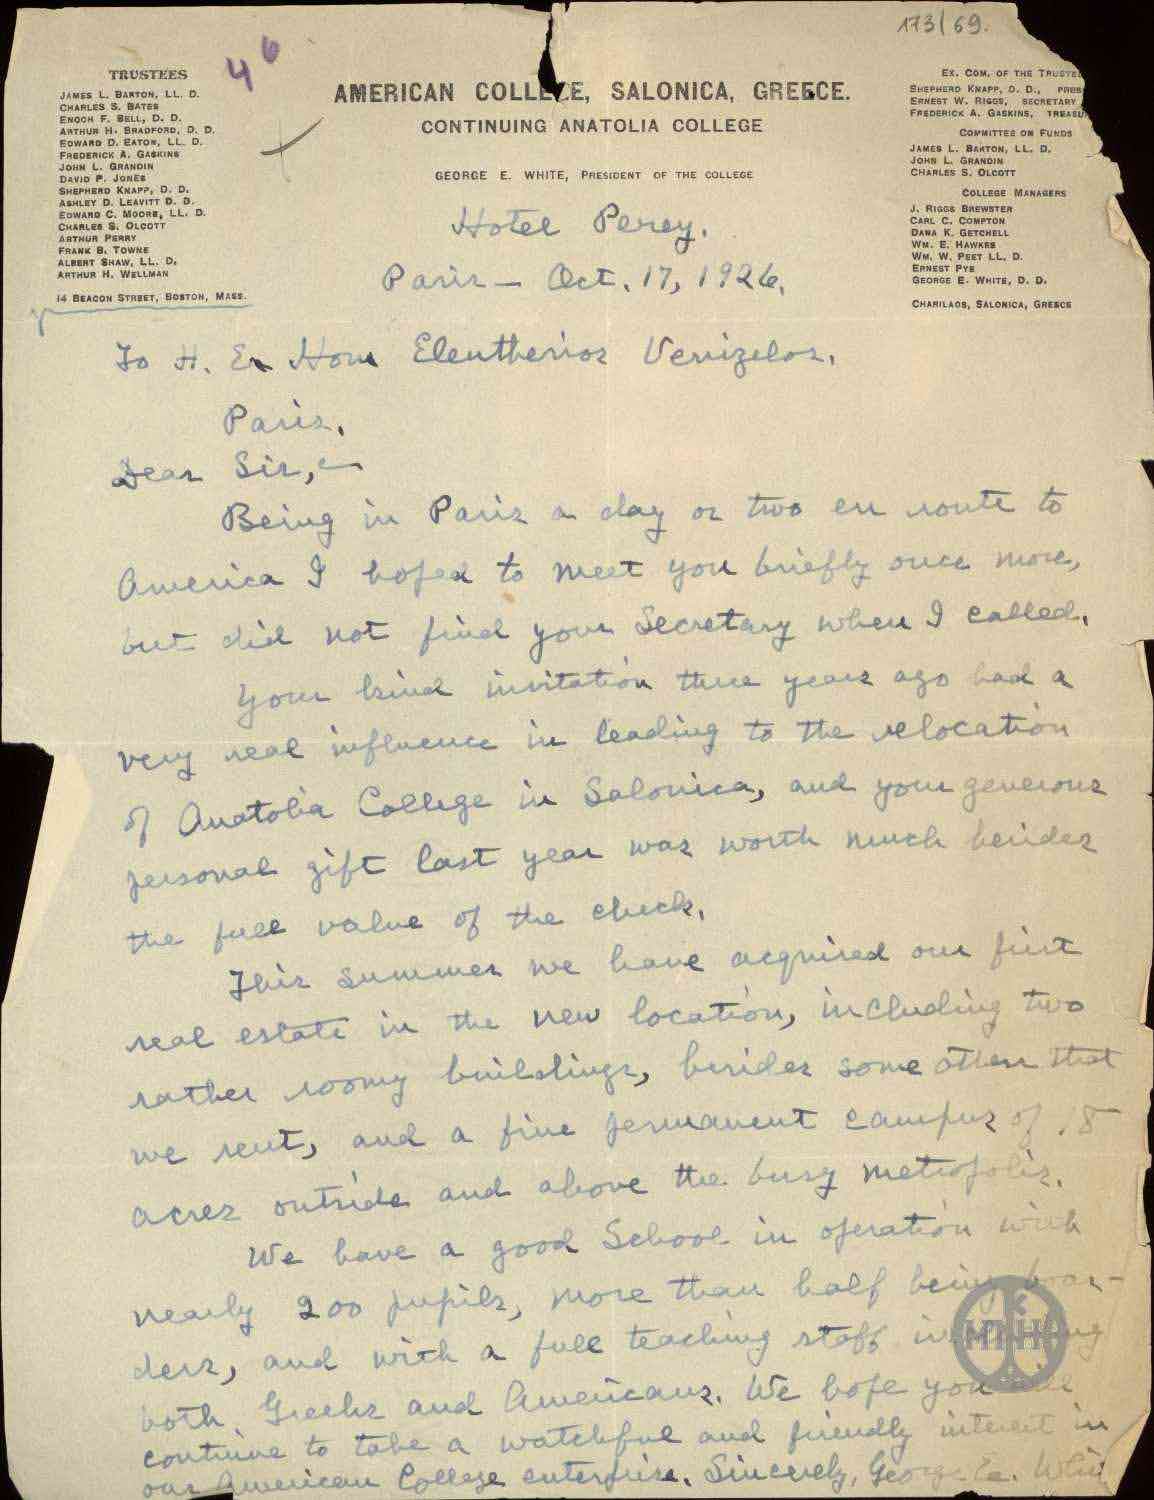 173/69.
46
TRUSTEES
JAMES L. BARTON, LL. D.
CHARLES S. BATES
ENOCH F. BELL, D. D.
ARTHUR H. BRADFORD, D. D.
EDWARD D. EATON, LL. D.
FREDERICK A. GASKINS
JOHN L. GRANDIN
DAVID P. JONES
SHEPHERD KNAPP, D. D.
ASHLEY D. LEAVITT D. D.
EDWARD C. MOORE, LL. D.
CHARLES S. OLCOTT
ARTHUR PERRY
FRANK B. TOWNE
ALBERT SHAW, LL. D.
ARTHUR H. WELLMAN
14 BEACON STREET, BOSTON, MASS.
AMERICAN COLLEGE, SALONICA, GREECE.
CONTINUING ANATOLIA COLLEGE
GEORGE E. WHITE, PRESIDENT OF THE COLLEGE
EX. COM. OF THE TRUSTEE
SHEPHERD KNAPP, D. D., PRES
ERNEST W. RIGGS, SECRETARY
FREDERICK A. GASKINS, TREASU
COMMITTEE ON FUNDS
JAMES L. BARTON, LL. D.
JOHN L. GRANDIN
CHARLES S. OLCOTT
COLLEGE MANAGERS
J. RIGGS BREWSTER
CARL C. COMPTON
DANA K. GETCHELL
WM. E. HAWKES
WM. W. PEET LL. D.
ERNEST PYE
GEORGE E. WHITE, D. D.
CHARILAOS, SALONICA, GREECE
Hotel Perey.
Paris – Oct. 17, 1926.
To H. Ex Hon Eleutherios Venizelos.
Paris.
Dear Sir,
Being in Paris a day or two en route to
America I hoped to meet you briefly once more,
but did not find your Secretary when I called.
Your kind invitation three years ago had a
very real influence in leading to the relocation
of Anatolia College in Salonica, and your generous
personal gift last year was worth much besides
the full value of the check.
This summer we have acquired our first
real estate in the new location, including two
rather roomy buildings, besides some others that
we rent, and a fine permanent campus of 18
acres outside and above the busy metropolis.
We have a good School in operation with
nearly 200 pupils, more than half being boar-
ders, and with a full teaching staff including
both Greeks and Americans. We hope you will
continue to take a watchful and friendly interest in
our American College enterprise. Sincerely, George E. White